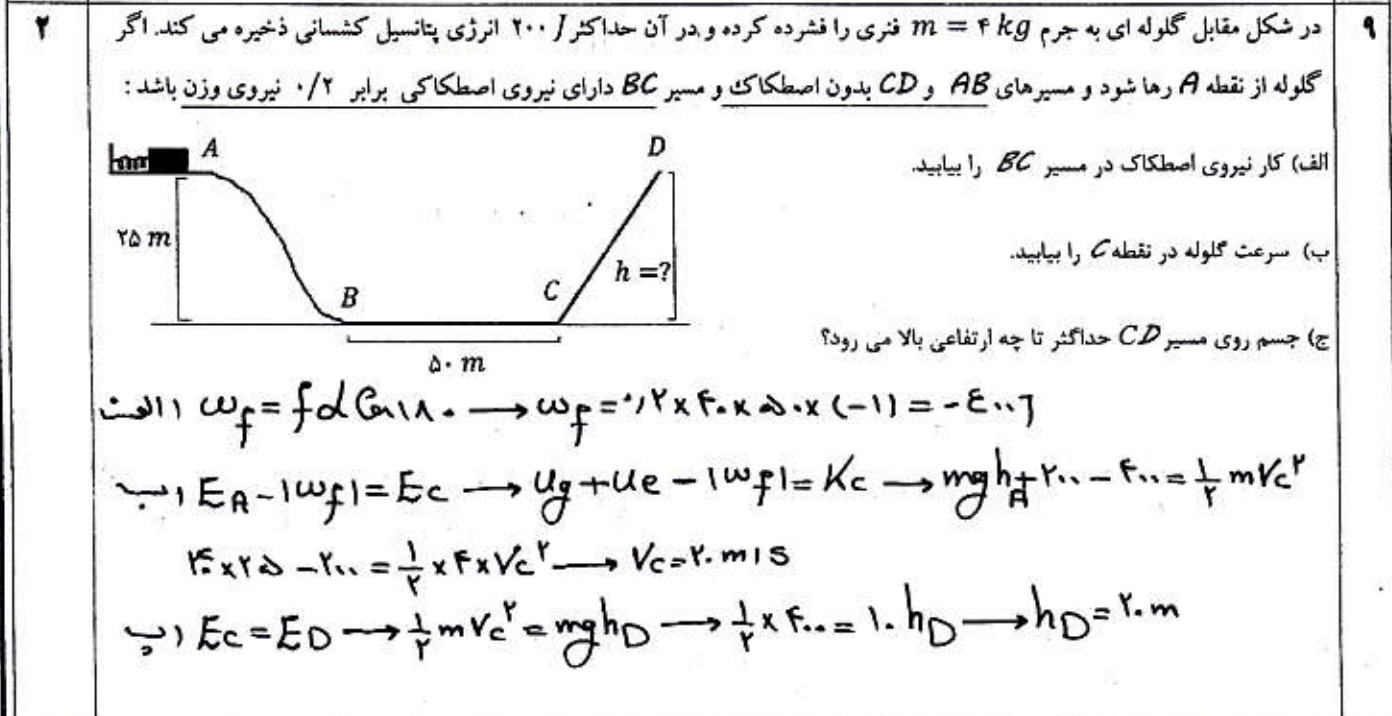 ۹
۲
در شکل مقابل گلوله ای به جرم m = ۴ kg فنری را فشرده کرده و در آن حداکثر ۲۰۰ J انرژی پتانسیل کشسانی ذخیره می کند. اگر
گلوله از نقطه A رها شود و مسیرهای AB و CD بدون اصطکاک و مسیر BC دارای نیروی اصطکاکی برابر ۰/۲ نیروی وزن باشد :
الف) کار نیروی اصطکاک در مسیر BC را بیابید.
ب) سرعت گلوله در نقطه C را بیابید.
ج) جسم روی مسیر CD حداگثر تا چه ارتفاعی بالا می رود؟
A
D
۲۵ m
h =?
B
C
۵۰ m
الف) W_f = f d Cos ۱۸۰ → W_f = ۰/۲ × ۴۰ × ۵۰ × (-۱) = -۴۰۰ J
ب) E_A - |W_f| = E_C → U_g + U_e - |W_f| = K_C → mgh_A + ۲۰۰ - ۴۰۰ = ۱/۲ mV_C^۲
۴۰ × ۲۵ - ۲۰۰ = ۱/۲ × ۴ × V_C^۲ → V_C = ۲۰ m/s
پ) E_C = E_D → ۱/۲ mV_C^۲ = mgh_D → ۱/۲ × ۴۰۰ = ۱۰ h_D → h_D = ۲۰ m